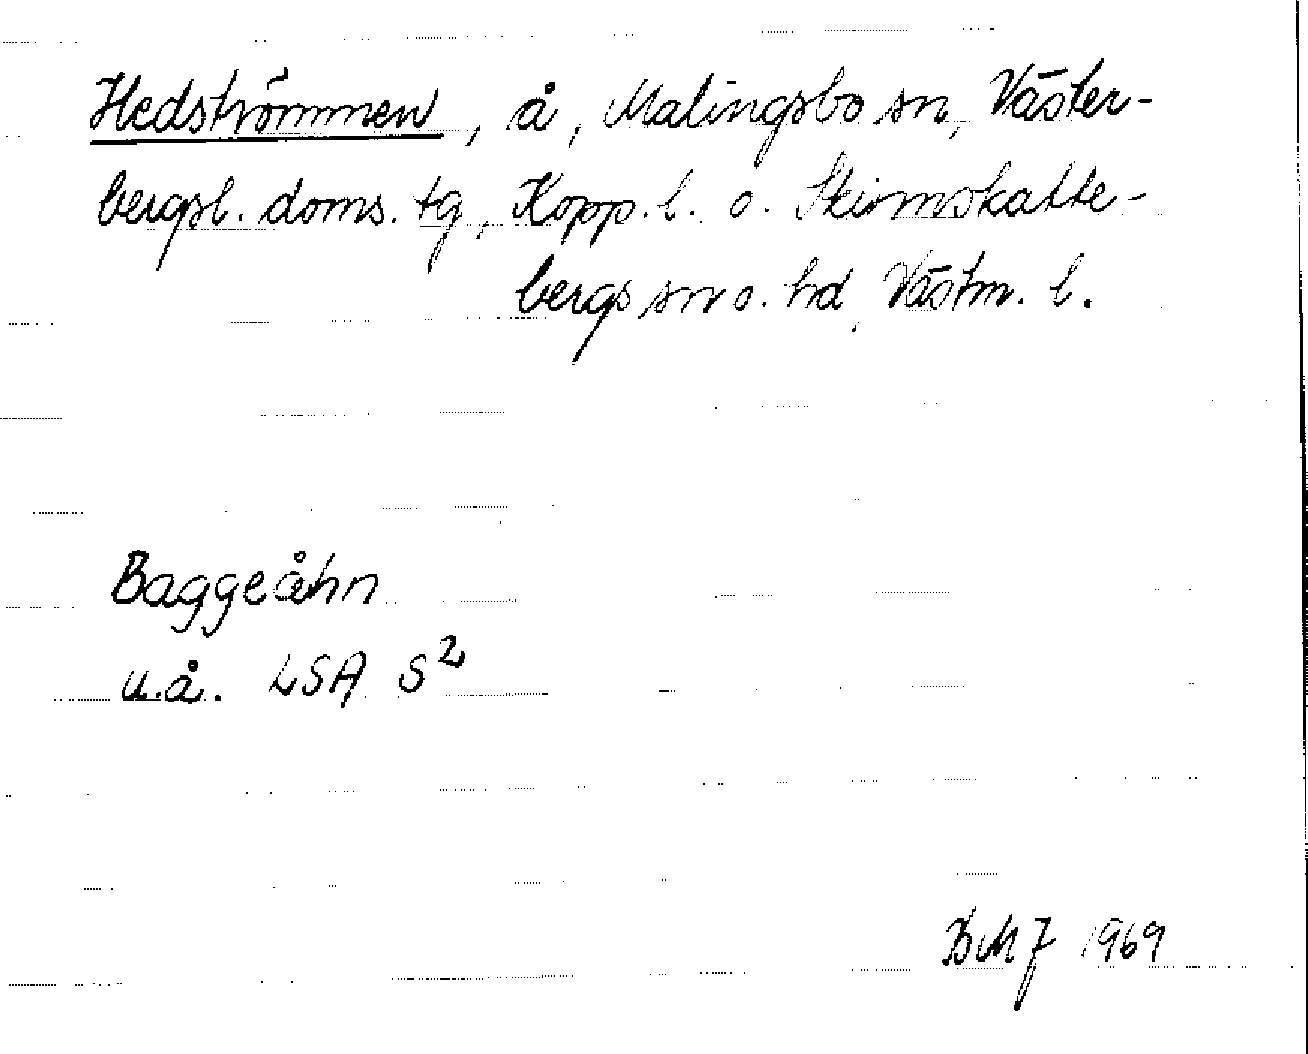 Hedströmmen, å, Malingsbo sn, Väster-
bergsl. doms. tg, Kopp. l. o. Skinnskatte-
bergs sn o. hd, Västm. l.
Baggeåhn
u.å. LSA S²
BMJ 1969